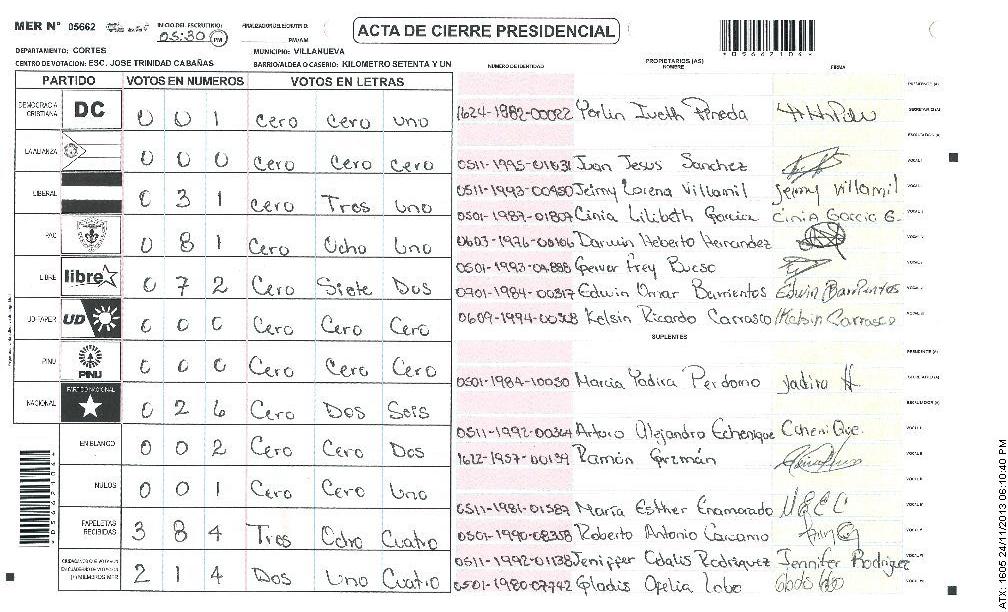 MER N° 05662 INICIO DEL ESCRUTINIO: 05:30 PM FINALIZACION DEL ESCRUTINIO: PM/AM ACTA DE CIERRE PRESIDENCIAL
DEPARTAMENTO: CORTES MUNICIPIO: VILLANUEVA
CENTRO DE VOTACION: ESC. JOSE TRINIDAD CABAÑAS BARRIO/ALDEA O CASERIO: KILOMETRO SETENTA Y UN
PARTIDO VOTOS EN NUMEROS VOTOS EN LETRAS
DEMOCRACIA CRISTIANA DC 0 0 1 Cero Cero Uno
LA ALIANZA 0 0 0 Cero Cero Cero
LIBERAL 0 3 1 Cero Tres Uno
PAC 0 8 1 Cero Ocho Uno
LIBRE libre 0 7 2 Cero Siete Dos
UD-FAPER UD 0 0 0 Cero Cero Cero
PINU PINU 0 0 0 Cero Cero Cero
NACIONAL PARTIDO NACIONAL 0 2 6 Cero Dos Seis
EN BLANCO 0 0 2 Cero Cero Dos
NULOS 0 0 1 Cero Cero Uno
PAPELETAS RECIBIDAS 3 8 4 Tres Ocho Cuatro
2 1 4 Dos Uno Cuatro
NUMERO DE IDENTIDAD PROPIETARIOS (AS) NOMBRE FIRMA
PRESIDENTE (A)
1624-1982-00022 Yorlin Iveth Pineda SECRETARIO (A)
ESCRUTADOR (A)
0511-1995-01631 Juan Jesus Sanchez VOCAL I
0511-1993-00450 Jeimy Lorena Villamil Jeimy Villamil
0501-1987-01807 Cinia Lilibeth Garcia Cinia Garcia G.
0603-1976-00106 Darwin Heberto Hernandez
0501-1993-04888 Gerver Frey Bueso
0901-1984-00317 Edwin Omar Barrientos Edwin Barrientos
0609-1994-00308 Kelsin Ricardo Carrasco Kelsin Carrasco
SUPLENTES
PRESIDENTE (A)
0501-1984-10050 Marcia Yadira Perdomo Yadira SECRETARIO (A)
ESCRUTADOR (A)
0511-1992-00364 Arturo Alejandro Echenique Echenique VOCAL I
1622-1957-00139 Ramón Guzmán VOCAL II
0511-1981-01587 María Esther Enamorado
0501-1990-08358 Roberto Antonio Carcamo
0511-1992-01138 Jennipper Odalis Rodriquez Jennifer Rodriguez
0501-1980-07742 Gladis Ofelia Lobo
ATX: 1605 24/11/2013 06:10:40 PM